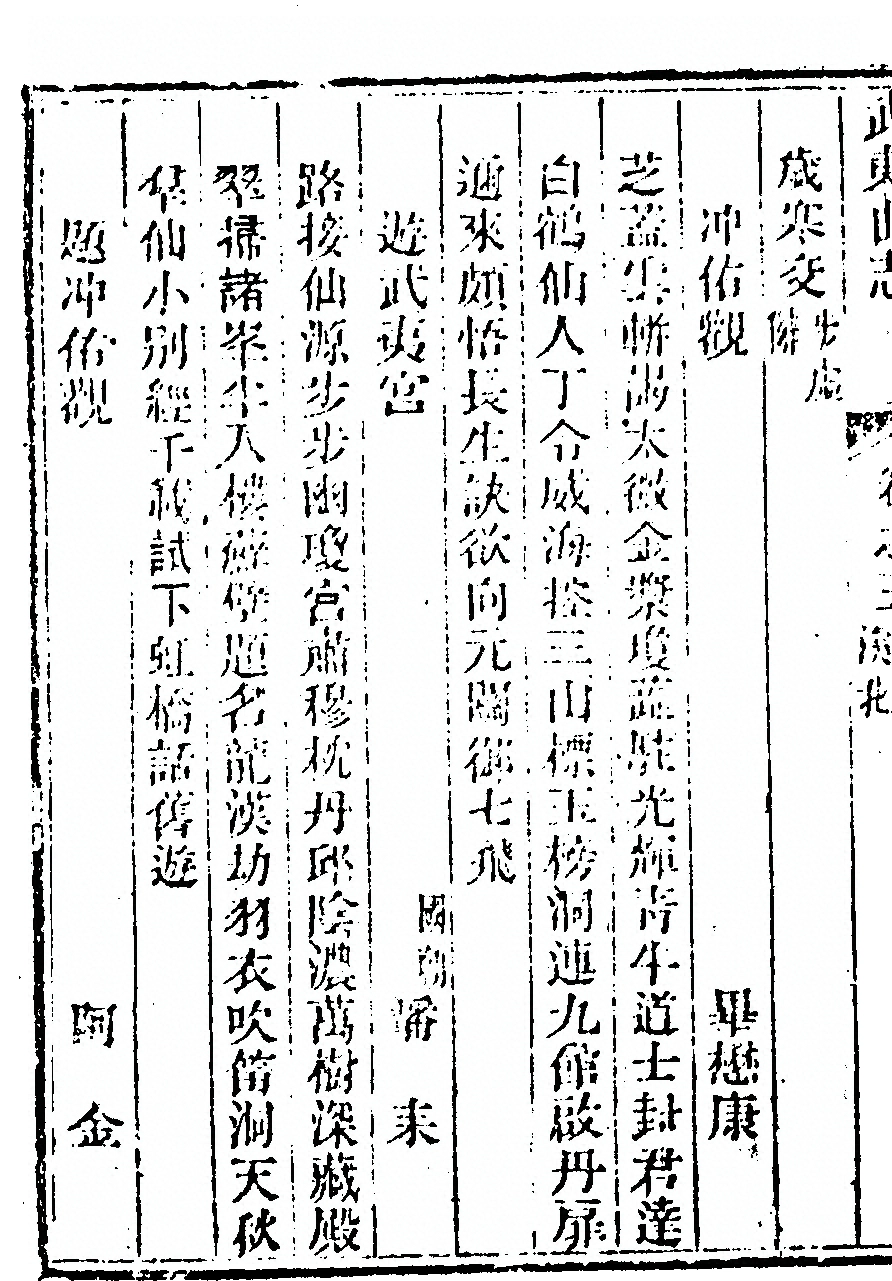 武夷山志 卷之五 溪北
歲寒交
冲佑觀 畢懋康
芝蓋雲軿謁太微金漿瓊蕋駐光輝青牛道士封君達
白鶴仙人丁令威海控三山標玉榜洞連九館啟丹扉
邇來頗悟長生訣欲向元關御七飛
遊武夷宮 國朝 潘耒
路接仙源步步幽瓊宮肅穆枕丹邱陰濃萬樹深藏殿
翠掃諸峯半入樓蘚壁題名龍漢劫羽衣吹笛洞天秋
羣仙小別經千載試下虹橋話舊遊
題冲佑觀 阿金